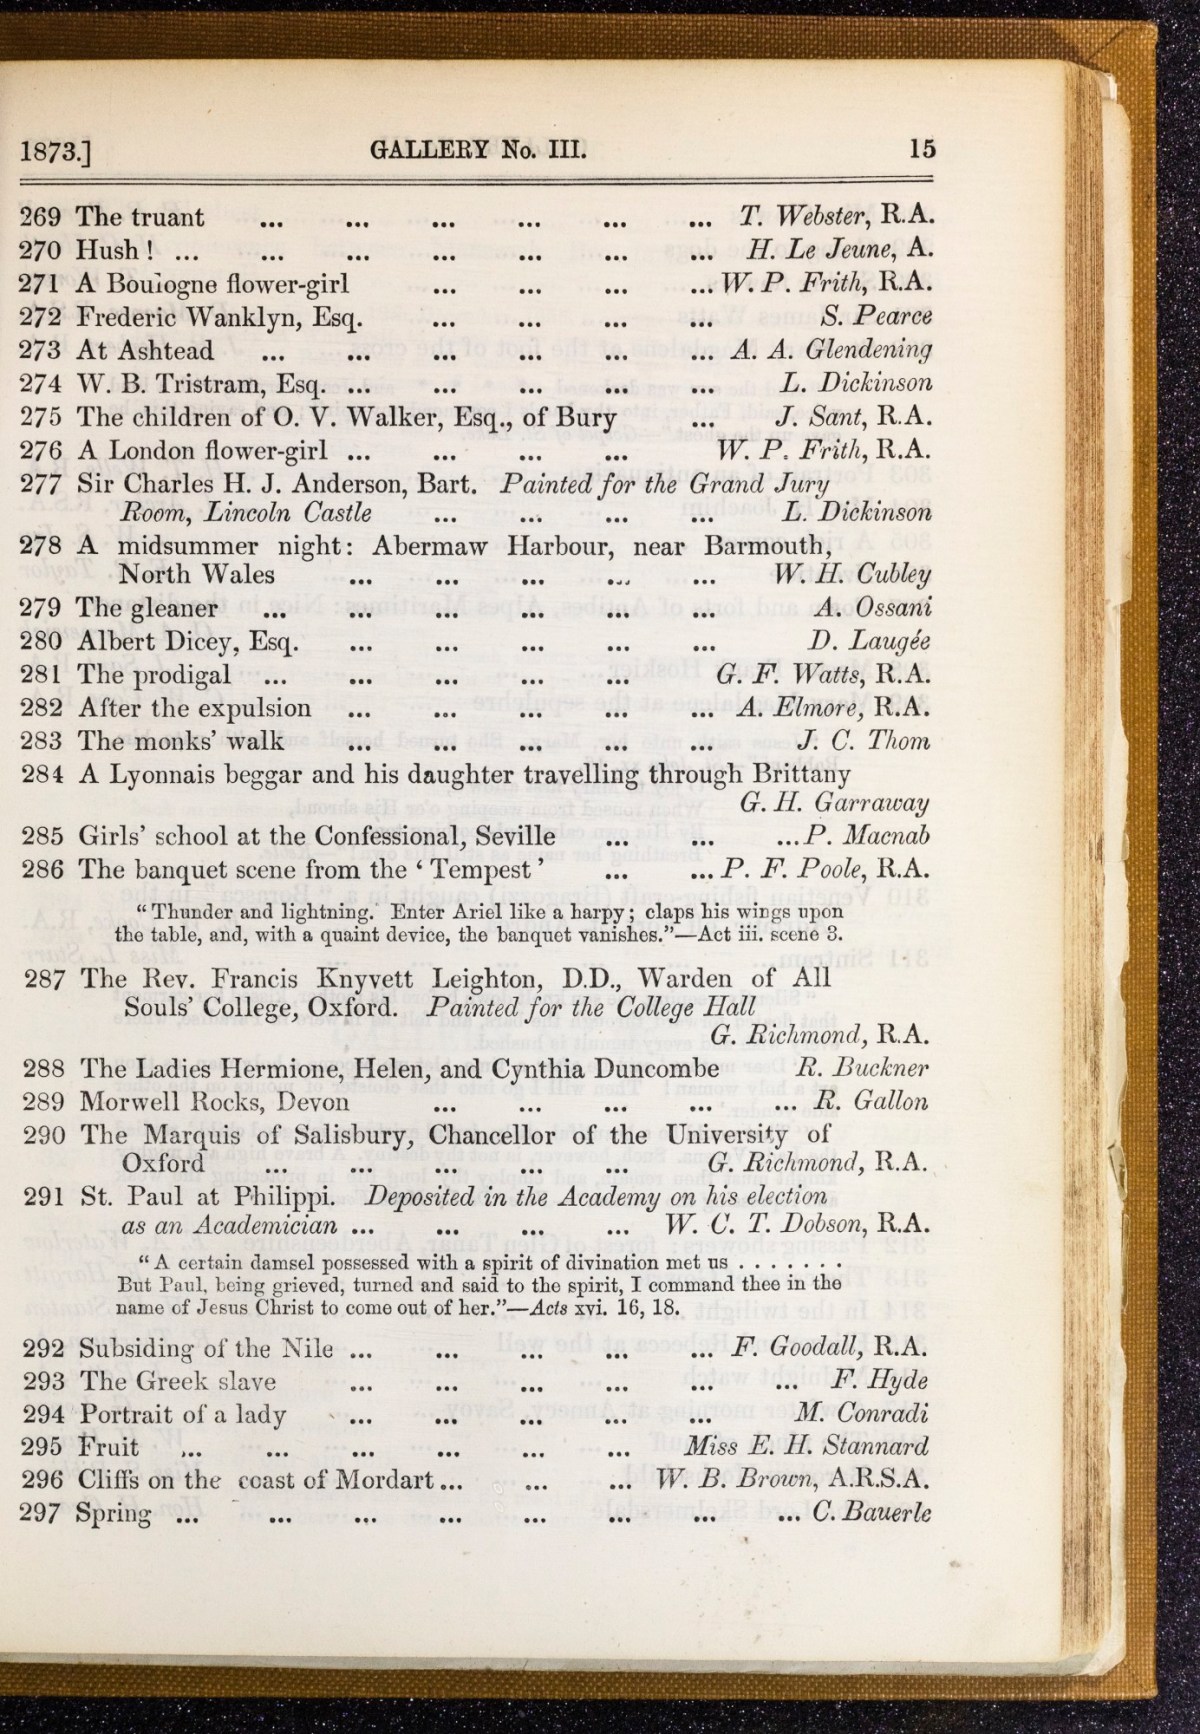 1873.] GALLERY No. III. 15
269 The truant ... ... ... ... ... ... T. Webster, R.A.
270 Hush ! ... ... ... ... ... ... ... H. Le Jeune, A.
271 A Boulogne flower-girl ... ... ... ... W. P. Frith, R.A.
272 Frederic Wanklyn, Esq. ... ... ... ... S. Pearce
273 At Ashtead ... ... ... ... ... ... A. A. Glendening
274 W. B. Tristram, Esq. ... ... ... ... ... L. Dickinson
275 The children of O. V. Walker, Esq., of Bury ... J. Sant, R.A.
276 A London flower-girl ... ... ... ... W. P. Frith, R.A.
277 Sir Charles H. J. Anderson, Bart. Painted for the Grand Jury
Room, Lincoln Castle ... ... ... ... L. Dickinson
278 A midsummer night: Abermaw Harbour, near Barmouth,
North Wales ... ... ... ... ... W. H. Cubley
279 The gleaner ... ... ... ... ... ... A. Ossani
280 Albert Dicey, Esq. ... ... ... ... ... D. Laugée
281 The prodigal ... ... ... ... ... G. F. Watts, R.A.
282 After the expulsion ... ... ... ... ... A. Elmore, R.A.
283 The monks' walk ... ... ... ... ... J. C. Thom
284 A Lyonnais beggar and his daughter travelling through Brittany
G. H. Garraway
285 Girls' school at the Confessional, Seville ... ... ... P. Macnab
286 The banquet scene from the ‘ Tempest ’ ... ... P. F. Poole, R.A.
“ Thunder and lightning. Enter Ariel like a harpy ; claps his wings upon
the table, and, with a quaint device, the banquet vanishes.”—Act iii. scene 3.
287 The Rev. Francis Knyvett Leighton, D.D., Warden of All
Souls' College, Oxford. Painted for the College Hall
G. Richmond, R.A.
288 The Ladies Hermione, Helen, and Cynthia Duncombe R. Buckner
289 Morwell Rocks, Devon ... ... ... ... ... R. Gallon
290 The Marquis of Salisbury, Chancellor of the University of
Oxford ... ... ... ... ... G. Richmond, R.A.
291 St. Paul at Philippi. Deposited in the Academy on his election
as an Academician ... ... ... ... W. C. T. Dobson, R.A.
“ A certain damsel possessed with a spirit of divination met us . . . . . . .
But Paul, being grieved, turned and said to the spirit, I command thee in the
name of Jesus Christ to come out of her.”—Acts xvi. 16, 18.
292 Subsiding of the Nile ... ... ... ... ... F. Goodall, R.A.
293 The Greek slave ... ... ... ... ... ... F. Hyde
294 Portrait of a lady ... ... ... ... ... M. Conradi
295 Fruit ... ... ... ... ... ... Miss E. H. Stannard
296 Cliffs on the coast of Mordart ... ... ... W. B. Brown, A.R.S.A.
297 Spring ... ... ... ... ... ... ... ... C. Bauerle